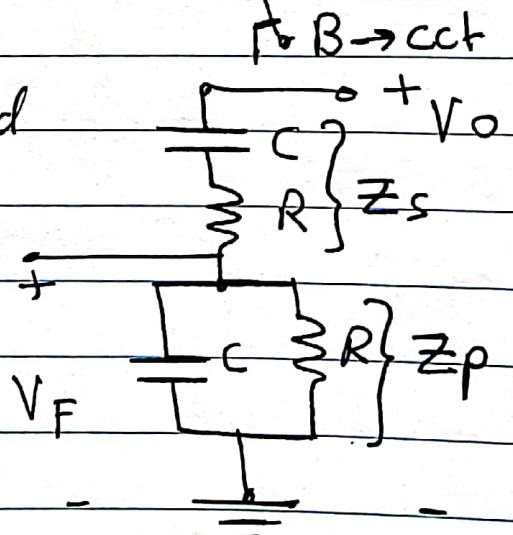 B → cct
d
+
Vo
C
R } Zs
+
C
R } Zp
VF
-
-